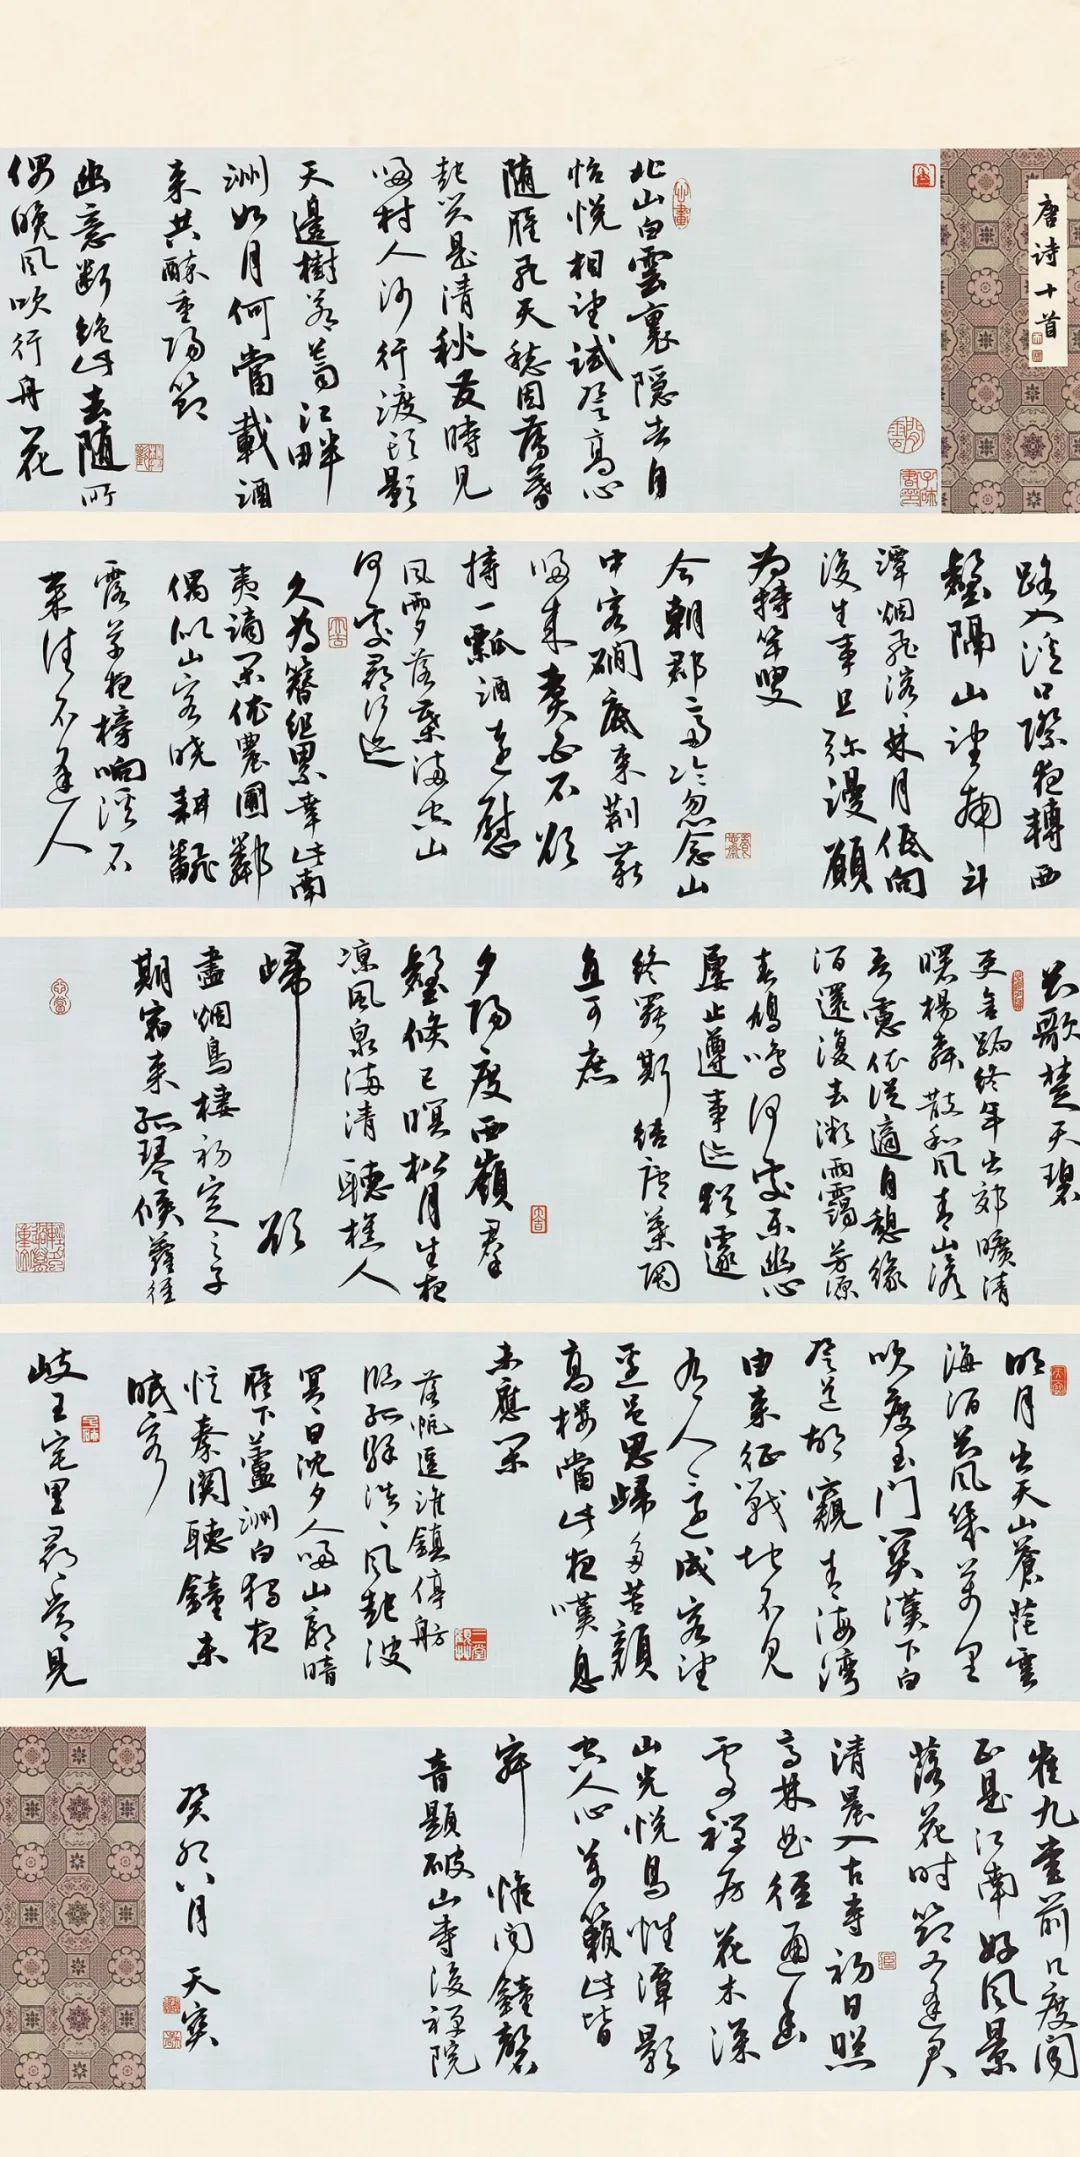 唐诗十首
北山白雲裏隱者自
怡悅相望試登高心
随雁飛天愁因薄暮
起興是清秋发時見
歸村人沙行渡頭影
天邊樹若薺江畔
洲如月何當載酒
来共醉重陽節
幽意断绝此去随所
偶晚風吹行舟花
路入溪口際夜轉西
壑隔山望南斗
潭烟飛溶〻林月低向
後生事且弥漫願
為持竿叟
今朝郡齋冷忽念山
中客澗底束荆薪
歸来煮白石欲
持一瓢酒遠慰
風雨夕落葉滿空山
何處尋行迹
久為簪组累幸此南
夷謫閑依農圃鄰
偶似山客曉耕翻
露草夜榜响溪石
来往不逢人
長歌楚天碧
吏舍跼終年出郊曠清
曙楊柳散和風青山澹
吾慮依叢適自憩緣
澗還復去微雨靄芳源
春鳩鳴何處樂幽心
屢止遵事迹猶遽
終罷斯結廬慕陶
直可庶
夕陽度西嶺群
壑倏已暝松月生夜
凉風泉满清聽樵人
歸欲
盡烟鳥棲初定之子
期宿来孤琴候蘿徑
明月出天山蒼茫雲
海間長風幾萬里
吹度玉門關漢下白
登道胡窺青海灣
由来征戰地不見
有人還戍客望
邊邑思歸多苦顏
高樓當此夜嘆息
未應閑
落帆逗淮鎮停舫
臨孤驛浩〻風起波
冥〻日沈夕人歸山郭暗
雁下蘆洲白獨夜
憶秦關聽鐘未
眠客
岐王宅里尋常見
崔九堂前几度聞
正是江南好風景
落花時節又逢君
清晨入古寺初日照
高林曲徑通幽
處禅房花木深
山光悦鳥性潭影
空人心萬籟此皆
寂惟聞鐘磬
音題破山寺後禅院
癸卯八月天寶